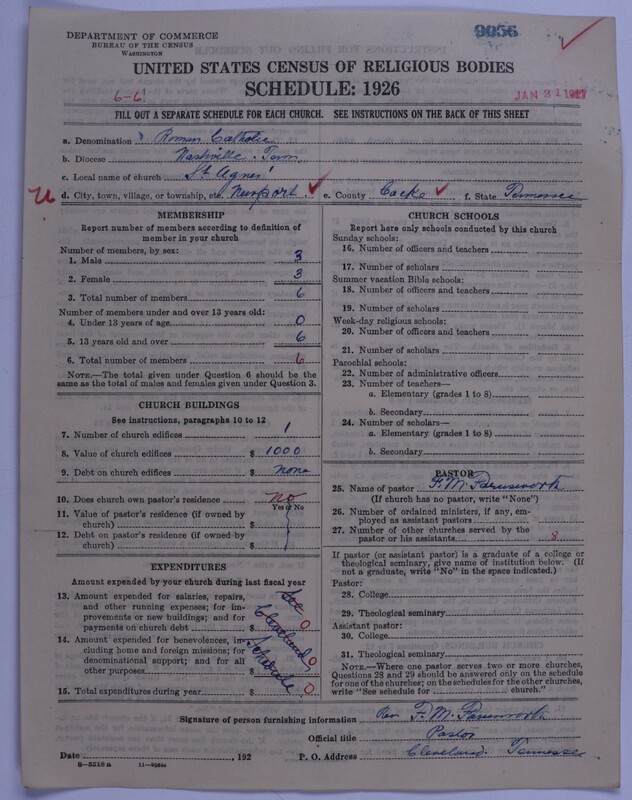 DEPARTMENT OF COMMERCE
BUREAU OF THE CENSUS
WASHINGTON
9056
UNITED STATES CENSUS OF RELIGIOUS BODIES
SCHEDULE: 1926
6-6
JAN 31 1927
FILL OUT A SEPARATE SCHEDULE FOR EACH CHURCH. SEE INSTRUCTIONS ON THE BACK OF THIS SHEET
a. Denomination Roman Catholic
b. Diocese Nashville. Tenn
c. Local name of church St Agnes'
d. City, town, village, or township, etc. Newport e. County Cocke f. State Tennessee
MEMBERSHIP
Report number of members according to definition of
member in your church
Number of members, by sex:
1. Male 3
2. Female 3
3. Total number of members 6
Number of members under and over 13 years old:
4. Under 13 years of age 0
5. 13 years old and over 6
6. Total number of members 6
NOTE.—The total given under Question 6 should be
same as the total of males and females given under Question 3.
CHURCH BUILDINGS
See instructions, paragraphs 10 to 12
7. Number of church edifices 1
8. Value of church edifices $ 1000
9. Debt on church edifices $ none
10. Does church own pastor's residence no
Yes or No
11. Value of pastor's residence (if owned by
church) $
12. Debt on pastor's residence (if owned by
church) $
EXPENDITURES
Amount expended by your church during last fiscal year
13. Amount expended for salaries, repairs,
and other running expenses; for im-
provements or new buildings; and for
payments on church debt $ 0
14. Amount expended for benevolences, in-
cluding home and foreign missions; for
denominational support; and for all
other purposes $ 0
15. Total expenditures during year $ 0
See Cleveland Schedule
CHURCH SCHOOLS
Report here only schools conducted by this church
Sunday schools:
16. Number of officers and teachers
17. Number of scholars
Summer vacation Bible schools:
18. Number of officers and teachers
19. Number of scholars
Week-day religious schools:
20. Number of officers and teachers
21. Number of scholars
Parochial schools:
22. Number of administrative officers
23. Number of teachers—
a. Elementary (grades 1 to 8)
b. Secondary
24. Number of scholars—
a. Elementary (grades 1 to 8)
b. Secondary
PASTOR
25. Name of pastor F. M. Parnsworth
(If church has no pastor, write "None")
26. Number of ordained ministers, if any, em-
ployed as assistant pastors
27. Number of other churches served by the
pastor or his assistants 8
If pastor (or assistant pastor) is a graduate of a college or
theological seminary, give name of institution below. (If
not a graduate, write "No" in the space indicated.)
Pastor:
28. College
29. Theological seminary
Assistant pastor:
30. College
31. Theological seminary
NOTE.—Where one pastor serves two or more churches,
Questions 28 and 29 should be answered only on the schedule
for one of the churches; on the schedules for the other churches,
write "See schedule for church."
Signature of person furnishing information Rev F. M. Parnsworth
Official title Pastor
Date , 192 P. O. Address Cleveland. Tennessee
8—5518 a 11—9264